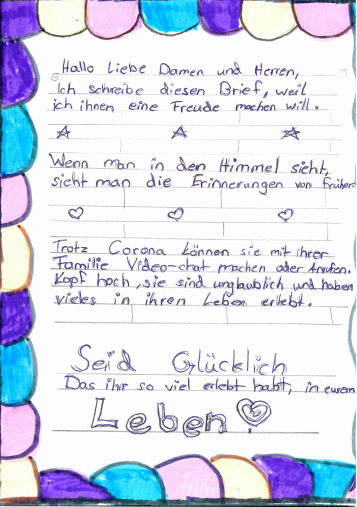 Hallo Liebe Damen und Herren,
Ich schreibe diesen Brief, weil
ich ihnen eine Freude machen will.
Wenn man in den Himmel sieht,
sieht man die Erinnerungen von früher.
Trotz Corona können sie mit ihrer
Familie Video-chat machen oder Anrufen.
Kopf hoch, sie sind unglaublich und haben
vieles in ihren Leben erlebt.
Seid Glücklich
Das ihr so viel erlebt habt, in eurem
Leben